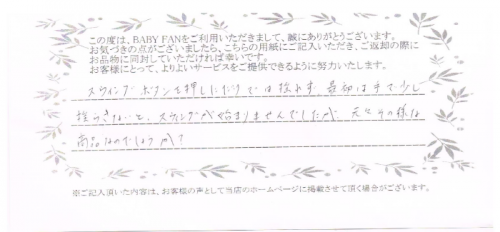 この度は、BABY FANをご利用いただきまして、誠にありがとうございます。
お気づきの点がございましたら、こちらの用紙にご記入いただき、ご返却の際に
お品物に同封していただければ幸いです。
お客様にとって、よりよいサービスをご提供できるように努力いたします。
スウィングボタンを押しただけでは揺れず 最初は手で少し
ないと、スウィングが始まりませんでしたが、元々その様な
商品なのでしょうか?
※ご記入頂いた内容は、お客様の声として当店のホームページに掲載させて頂く場合がございます。